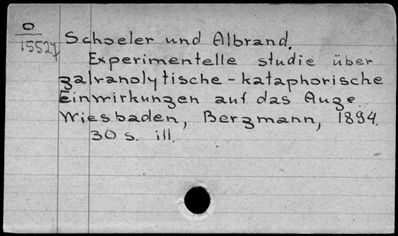 O
15527
Schoeler und Albrand.
Experimentelle studie über
galvanolytische-kataphorische
einwirkungen auf das Auge.
Wiesbaden, Bergmann, 1894.
30 s. ill.